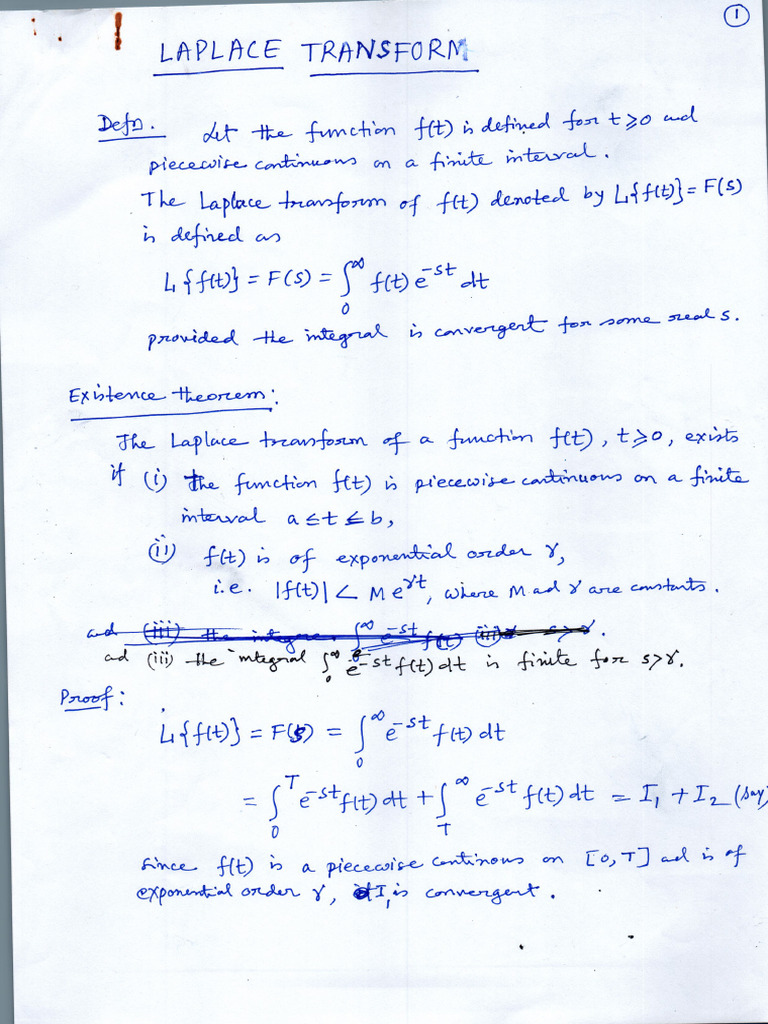 1
LAPLACE TRANSFORM
Defn. Let the function f(t) is defined for t ≥ 0 and
piecewise continuous on a finite interval.
The Laplace transform of f(t) denoted by L{f(t)} = F(s)
is defined as
L{f(t)} = F(s) = ∫₀^∞ f(t) e^{-st} dt
provided the integral is convergent for some real s.
Existence theorem:
The Laplace transform of a function f(t), t ≥ 0, exists
if (i) the function f(t) is piecewise continuous on a finite
interval a ≤ t ≤ b,
(ii) f(t) is of exponential order γ,
i.e. |f(t)| < M e^{γt}, where M and γ are constants.
and (iii) the integral ∫₀^∞ e^{-st} f(t) dt is finite for s > γ.
Proof:
L{f(t)} = F(s) = ∫₀^∞ e^{-st} f(t) dt
= ∫₀^T e^{-st} f(t) dt + ∫_T^∞ e^{-st} f(t) dt = I₁ + I₂ (say)
Since f(t) is a piecewise continous on [0, T] and is of
exponential order γ, I₁ is convergent.